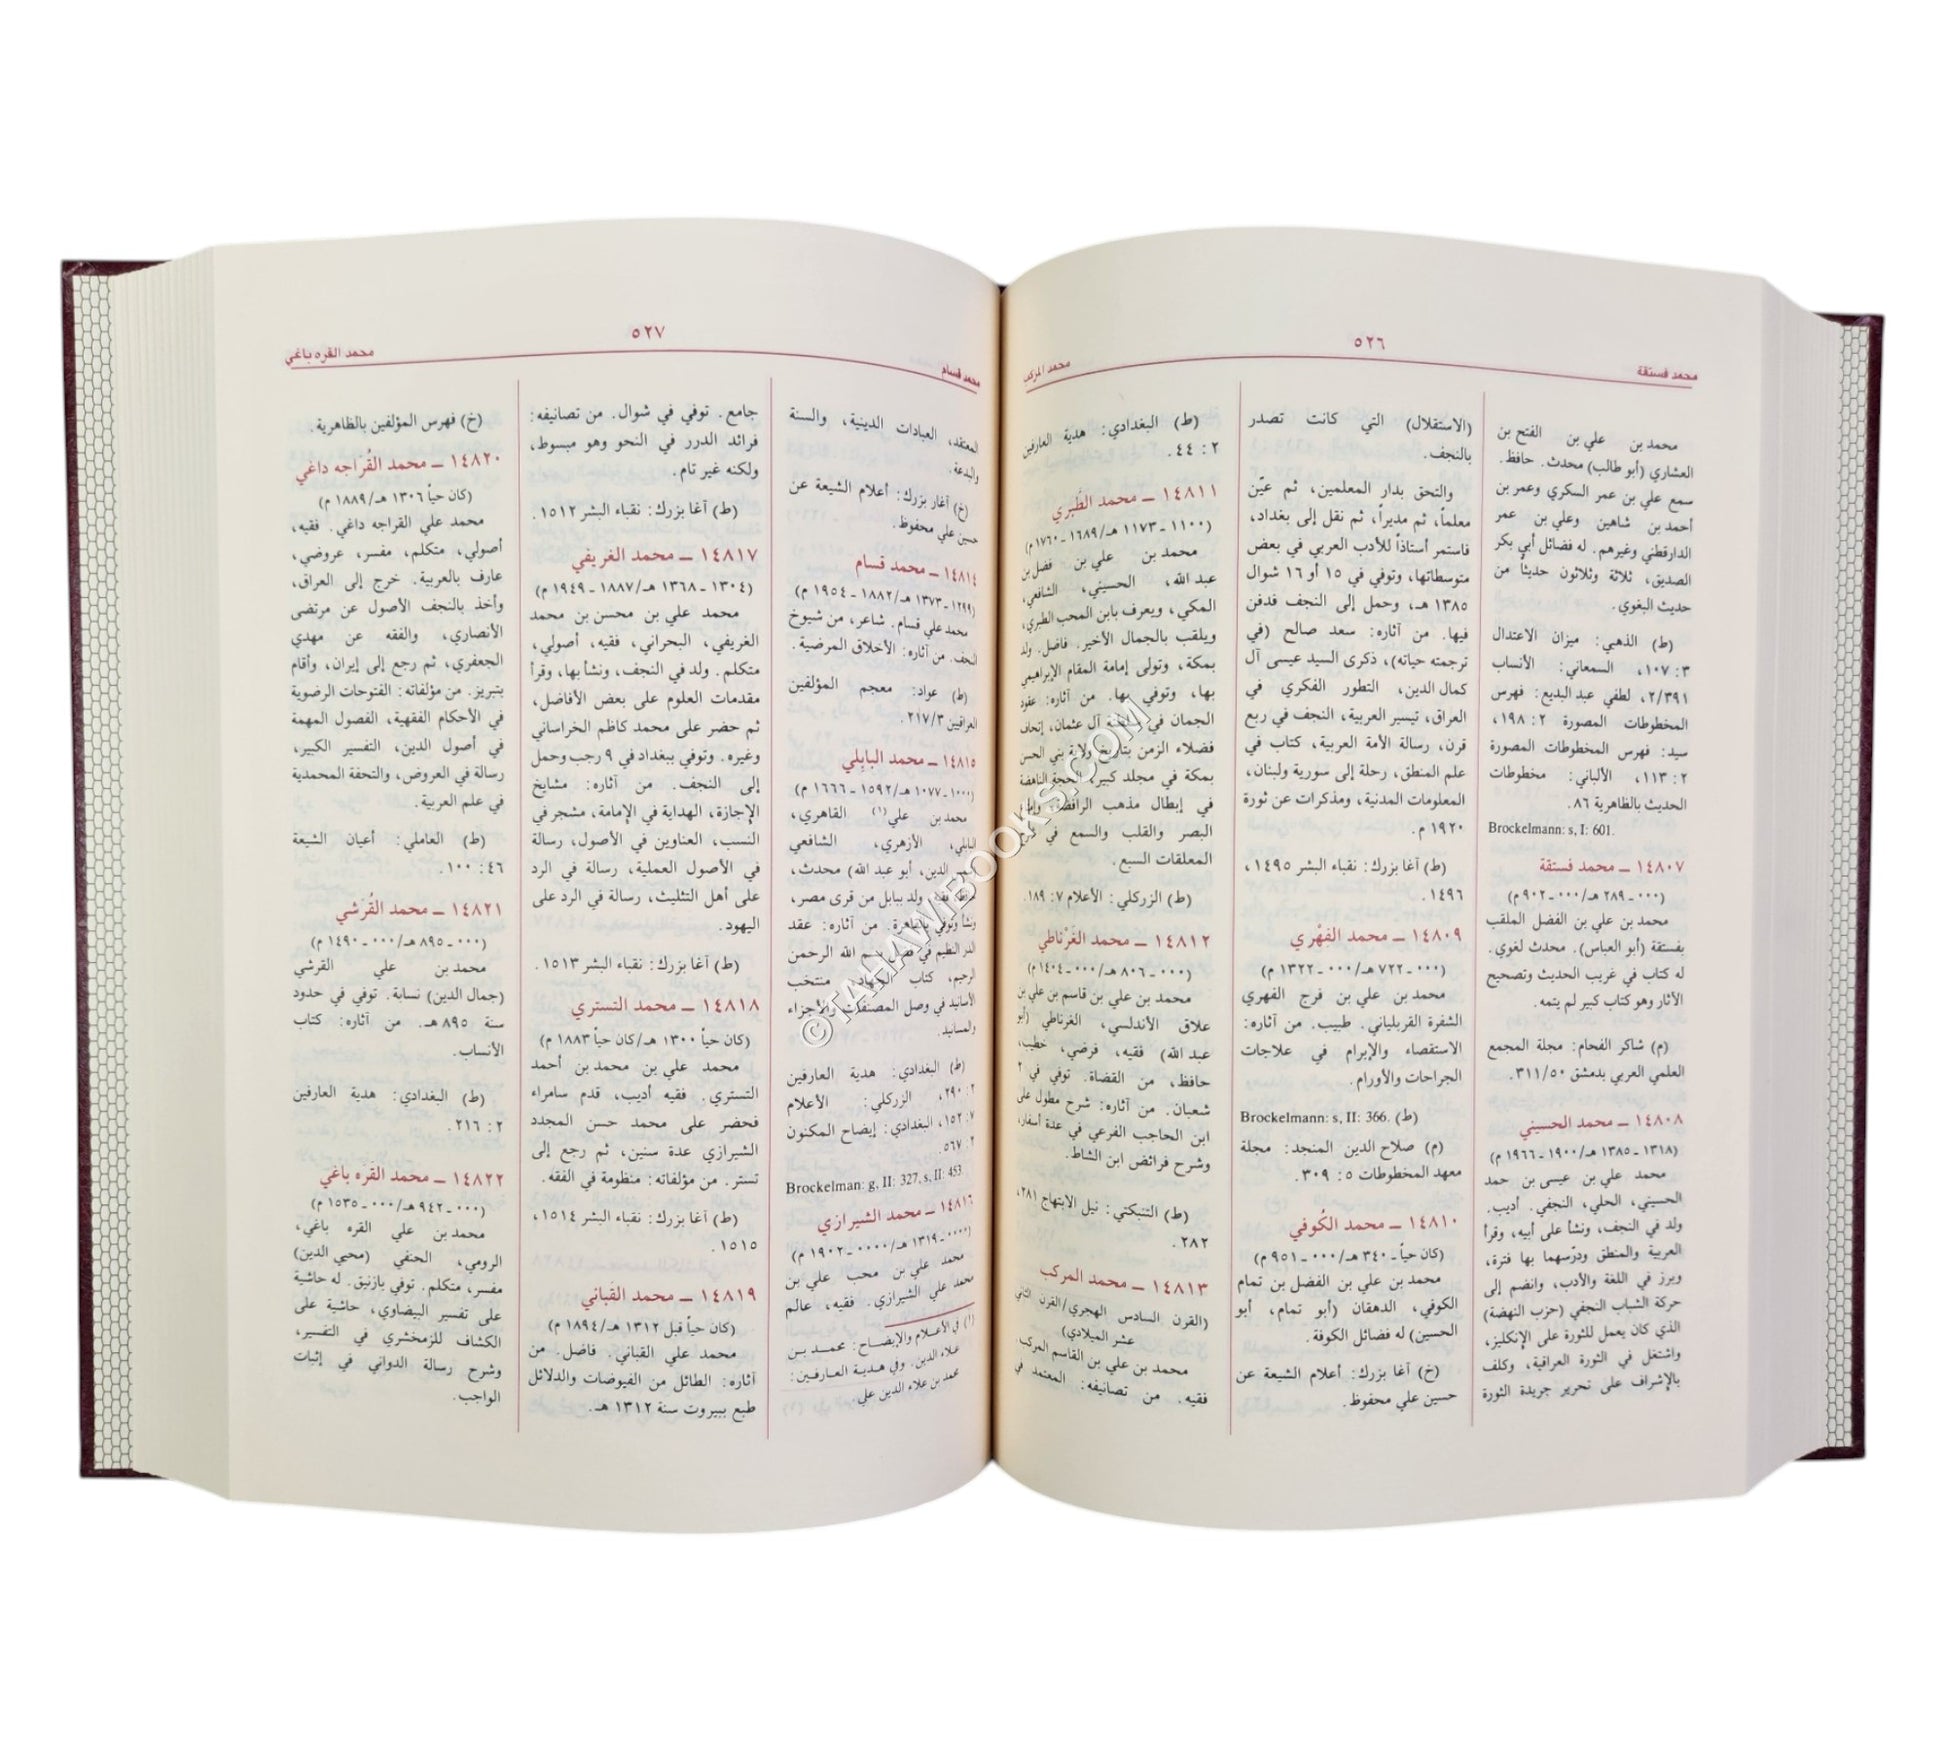 ٥٢٦
محمد فستقة
محمد المركب
محمد بن علي بن الفتح بن
العشاري (أبو طالب) محدث. حافظ.
سمع علي بن عمر السكري وعمر بن
أحمد بن شاهين وعلي بن عمر
الدارقطني وغيرهم. له فضائل أبي بكر
الصديق، ثلاثة وثلاثون حديثاً من
حديث البغوي.
(ط) الذهبي: ميزان الاعتدال
٣: ١٠٧، السمعاني: الأنساب
٢/٣٩١، لطفي عبد البديع: فهرس
المخطوطات المصورة ٢: ١٩٨،
سيد: فهرس المخطوطات المصورة
٢: ١١٣، الألباني: مخطوطات
الحديث بالظاهرية ٨٦.
Brockelmann: s, I: 601.
١٤٨٠٧ ــ محمد فستقة
(٠٠٠ - ٢٨٩ هـ/٠٠٠ - ٩٠٢ م)
محمد بن علي بن الفضل الملقب
بفستقة (أبو العباس). محدث لغوي.
له كتاب في غريب الحديث وتصحيح
الآثار وهو كتاب كبير لم يتمه.
(م) شاكر الفحام: مجلة المجمع
العلمي العربي بدمشق ٥٠/٣١١.
١٤٨٠٨ ــ محمد الحسيني
(١٣١٨ - ١٣٨٥ هـ/١٩٠٠ - ١٩٦٦ م)
محمد علي بن عيسى بن حمد
الحسيني، الحلي، النجفي. أديب.
ولد في النجف، ونشأ على أبيه، وقرأ
العربية والمنطق ودرّسهما بها فترة،
وبرز في اللغة والأدب، وانضم إلى
حركة الشباب النجفي (حزب النهضة)
الذي كان يعمل للثورة على الإنكليز،
واشتغل في الثورة العراقية، وكلف
بالإشراف على تحرير جريدة الثورة
(الاستقلال) التي كانت تصدر
بالنجف.
والتحق بدار المعلمين، ثم عيّن
معلماً، ثم مديراً، ثم نقل إلى بغداد،
فاستمر أستاذاً للأدب العربي في بعض
متوسطاتها، وتوفي في ١٥ أو ١٦ شوال
١٣٨٥ هـ، وحمل إلى النجف فدفن
فيها. من آثاره: سعد صالح (في
ترجمته حياته)، ذكرى السيد عيسى آل
كمال الدين، التطور الفكري في
العراق، تيسير العربية، النجف في ربع
قرن، رسالة الأمة العربية، كتاب في
علم المنطق، رحلة إلى سورية ولبنان،
المعلومات المدنية، ومذكرات عن ثورة
١٩٢٠ م.
(ط) آغا بزرك: نقباء البشر ١٤٩٥،
١٤٩٦.
١٤٨٠٩ ــ محمد الفِهْري
(٠٠٠ - ٧٢٢ هـ/٠٠٠ - ١٣٢٢ م)
محمد بن علي بن فرج الفهري
الشفرة القربلياني. طبيب. من آثاره:
الاستقصاء والإبرام في علاجات
الجراحات والأورام.
(ط) Brockelmann: s, II: 366.
(م) صلاح الدين المنجد: مجلة
معهد المخطوطات ٥: ٣٠٩.
١٤٨١٠ ــ محمد الكُوفي
(كان حياً - ٣٤٠ هـ/٠٠٠ - ٩٥١ م)
محمد بن علي بن الفضل بن تمام
الكوفي، الدهقان (أبو تمام، أبو
الحسين) له فضائل الكوفة.
(خ) آغا بزرك: أعلام الشيعة عن
حسين علي محفوظ.
(ط) البغدادي: هدية العارفين
٢: ٤٤.
١٤٨١١ ــ محمد الطَّبري
(١١٠٠ - ١١٧٣ هـ/١٦٨٩ - ١٧٦٠ م)
محمد بن علي بن فضل بن
عبد الله، الحسيني، الشافعي،
المكي، ويعرف بابن المحب الطبري،
ويلقب بالجمال الأخير. فاضل. ولد
بمكة، وتولى إمامة المقام الإبراهيمي
بها، وتوفي بها. من آثاره: عقود
الجمان في سلطنة آل عثمان، إتحاف
فضلاء الزمن بتاريخ ولاية بني الحسن
بمكة في مجلد كبير، الحجة الناهضة
في إبطال مذهب الرافضة،
البصر والقلب والسمع في
المعلقات السبع.
(ط) الزركلي: الأعلام ٧: ١٨٩.
١٤٨١٢ ــ محمد الغَرْناطي
(٠٠٠ - ٨٠٦ هـ/٠٠٠ - ١٤٠٤ م)
محمد بن علي بن قاسم بن علي بن
علاق الأندلسي، الغرناطي (أبو
عبد الله) فقيه، فرضي، خطيب،
حافظ، من القضاة. توفي في ٢
شعبان. من آثاره: شرح مطول على
ابن الحاجب الفرعي في عدة أسفار،
وشرح فرائض ابن الشاط.
(ط) التنبكتي: نيل الابتهاج ٢٨١،
٢٨٢.
١٤٨١٣ ــ محمد المركب
(القرن السادس الهجري/القرن الثاني
عشر الميلادي)
محمد بن علي بن القاسم المركب.
فقيه. من تصانيفه: المعتمد في
٥٢٧
محمد قسام
محمد القره باغي
المعتقد، العبادات الدينية، والسنة
والبدعة.
(خ) آغار بزرك: أعلام الشيعة عن
حسين علي محفوظ.
١٤٨١٤ ــ محمد قسام
(١٢٩٩ - ١٣٧٣ هـ/١٨٨٢ - ١٩٥٤ م)
محمد علي قسام. شاعر، من شيوخ
النجف. من آثاره: الأخلاق المرضية.
(ط) عواد: معجم المؤلفين
العراقيين ٢١٧/٣.
١٤٨١٥ ــ محمد البابِلي
(١٠٠٠ - ١٠٧٧ هـ/١٥٩٢ - ١٦٦٦ م)
محمد بن علي(١) القاهري،
البابلي، الأزهري، الشافعي
الدين، أبو عبد الله) محدث،
حافظ، فقيه. ولد ببابل من قرى مصر،
ونشأ وتوفي بالقاهرة. من آثاره: عقد
الدر النظيم في فضل بسم الله الرحمن
الرحيم، كتاب الجهاد، منتخب
الأسانيد في وصل المصنفات والأجزاء
والمسانيد.
(ط) البغدادي: هدية العارفين
٢: ٢٩٠، الزركلي: الأعلام
٧: ١٥٢، البغدادي: إيضاح المكنون
٢: ٥٦٧.
Brockelman: g, II: 327, s, II: 453
١٤٨١٦ ــ محمد الشيرازي
(٠٠٠٠ - ١٣١٩ هـ/٠٠٠٠ - ١٩٠٢ م)
محمد علي بن محب علي بن
محمد علي الشيرازي. فقيه، عالم
(١) في الأعلام والإيضاح: محمد بن
علاء الدين. وفي هدية العارفين:
محمد بن علاء الدين علي.
جامع. توفي في شوال. من تصانيفه:
فرائد الدرر في النحو وهو مبسوط،
ولكنه غير تام.
(ط) آغا بزرك: نقباء البشر ١٥١٢.
١٤٨١٧ ــ محمد الغريفي
(١٣٠٤ - ١٣٦٨ هـ/١٨٨٧ - ١٩٤٩ م)
محمد علي بن محسن بن محمد
الغريفي، البحراني، فقيه، أصولي،
متكلم. ولد في النجف، ونشأ بها، وقرأ
مقدمات العلوم على بعض الأفاضل،
ثم حضر على محمد كاظم الخراساني
وغيره. وتوفي ببغداد في ٩ رجب وحمل
إلى النجف. من آثاره: مشايخ
الإجازة، الهداية في الإمامة، مشجر في
النسب، العناوين في الأصول، رسالة
في الأصول العملية، رسالة في الرد
على أهل التثليث، رسالة في الرد على
اليهود.
(ط) آغا بزرك: نقباء البشر ١٥١٣.
١٤٨١٨ ــ محمد التستري
(كان حياً ١٣٠٠ هـ/كان حياً ١٨٨٣ م)
محمد علي بن محمد بن أحمد
التستري. فقيه أديب، قدم سامراء
فحضر على محمد حسن المجدد
الشيرازي عدة سنين، ثم رجع إلى
تستر. من مؤلفاته: منظومة في الفقه.
(ط) آغا بزرك: نقباء البشر ١٥١٤،
١٥١٥.
١٤٨١٩ ــ محمد القَباني
(كان حياً قبل ١٣١٢ هـ/١٨٩٤ م)
محمد علي القباني. فاضل. من
آثاره: الطائل من الفيوضات والدلائل
طبع ببيروت سنة ١٣١٢ هـ.
(خ) فهرس المؤلفين بالظاهرية.
١٤٨٢٠ ــ محمد القُراجه داغي
(كان حياً ١٣٠٦ هـ/١٨٨٩ م)
محمد علي القراجه داغي. فقيه،
أصولي، متكلم، مفسر، عروضي،
عارف بالعربية. خرج إلى العراق،
وأخذ بالنجف الأصول عن مرتضى
الأنصاري، والفقه عن مهدي
الجعفري، ثم رجع إلى إيران، وأقام
بتبريز. من مؤلفاته: الفتوحات الرضوية
في الأحكام الفقهية، الفصول المهمة
في أصول الدين، التفسير الكبير،
رسالة في العروض، والتحفة المحمدية
في علم العربية.
(ط) العاملي: أعيان الشيعة
٤٦: ١٠٠.
١٤٨٢١ ــ محمد القُرَشي
(٠٠٠ - ٨٩٥ هـ/٠٠٠ - ١٤٩٠ م)
محمد بن علي القرشي
(جمال الدين) نسابة. توفي في حدود
سنة ٨٩٥ هـ. من آثاره: كتاب
الأنساب.
(ط) البغدادي: هدية العارفين
٢: ٢١٦.
١٤٨٢٢ ــ محمد القَره باغي
(٠٠٠ - ٩٤٢ هـ/٠٠٠ - ١٥٣٥ م)
محمد بن علي القره باغي،
الرومي، الحنفي (محيي الدين)
مفسر، متكلم. توفي بازنيق. له حاشية
على تفسير البيضاوي، حاشية على
الكشاف للزمخشري في التفسير،
وشرح رسالة الدواني في إثبات
الواجب.
©TAHAWIBOOKS.COM